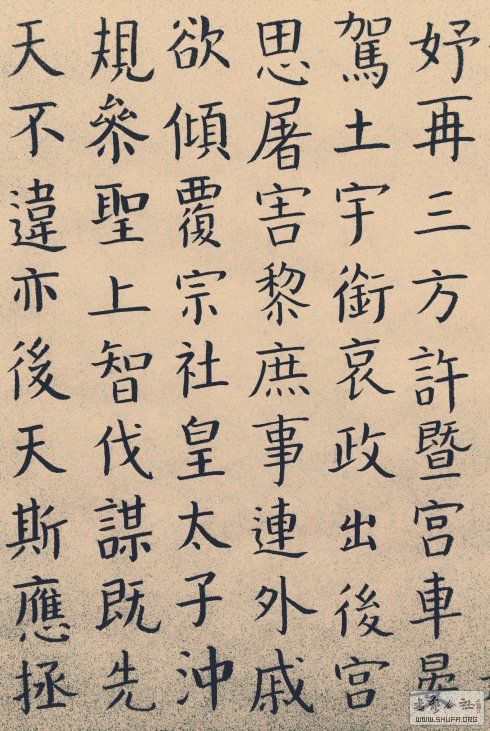 妤再三方許暨宮車晏
駕土宇銜哀政出後宮
思屠害黎庶事連外戚
欲傾覆宗社皇太子沖
規參聖上智伐謀既先
天不違亦後天斯應拯
WWW.SHUFA.ORG